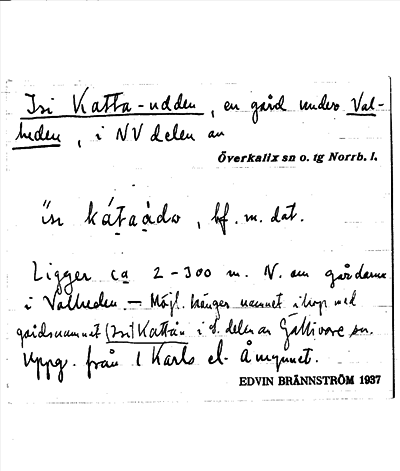 Isi Katta-udden, en gård under Val-
heden, i NV delen av
Överkalix sn o. tg Norrb. l.
i̋sı kátaádₒ, bf. m. dat.
Ligger ca 2-300 m. N. om gårdarna
i Valheden. — Möjl. hänger namnet ihop med
gårdsnamnet (Isi) Kattán i ö. delen av Gällivare sn.
Uppg. från I Karls el. Åmynnet.
EDVIN BRÄNNSTRÖM 1937